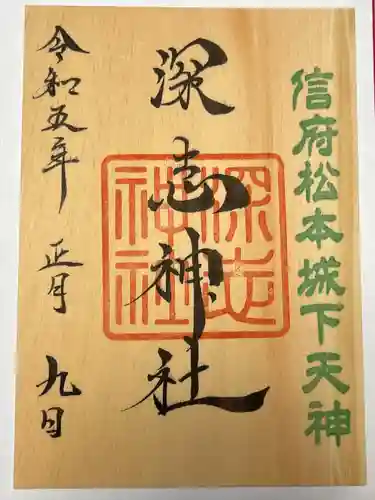 信府松本城下天神
深志神社
深志神社
令和五年 正月 九日